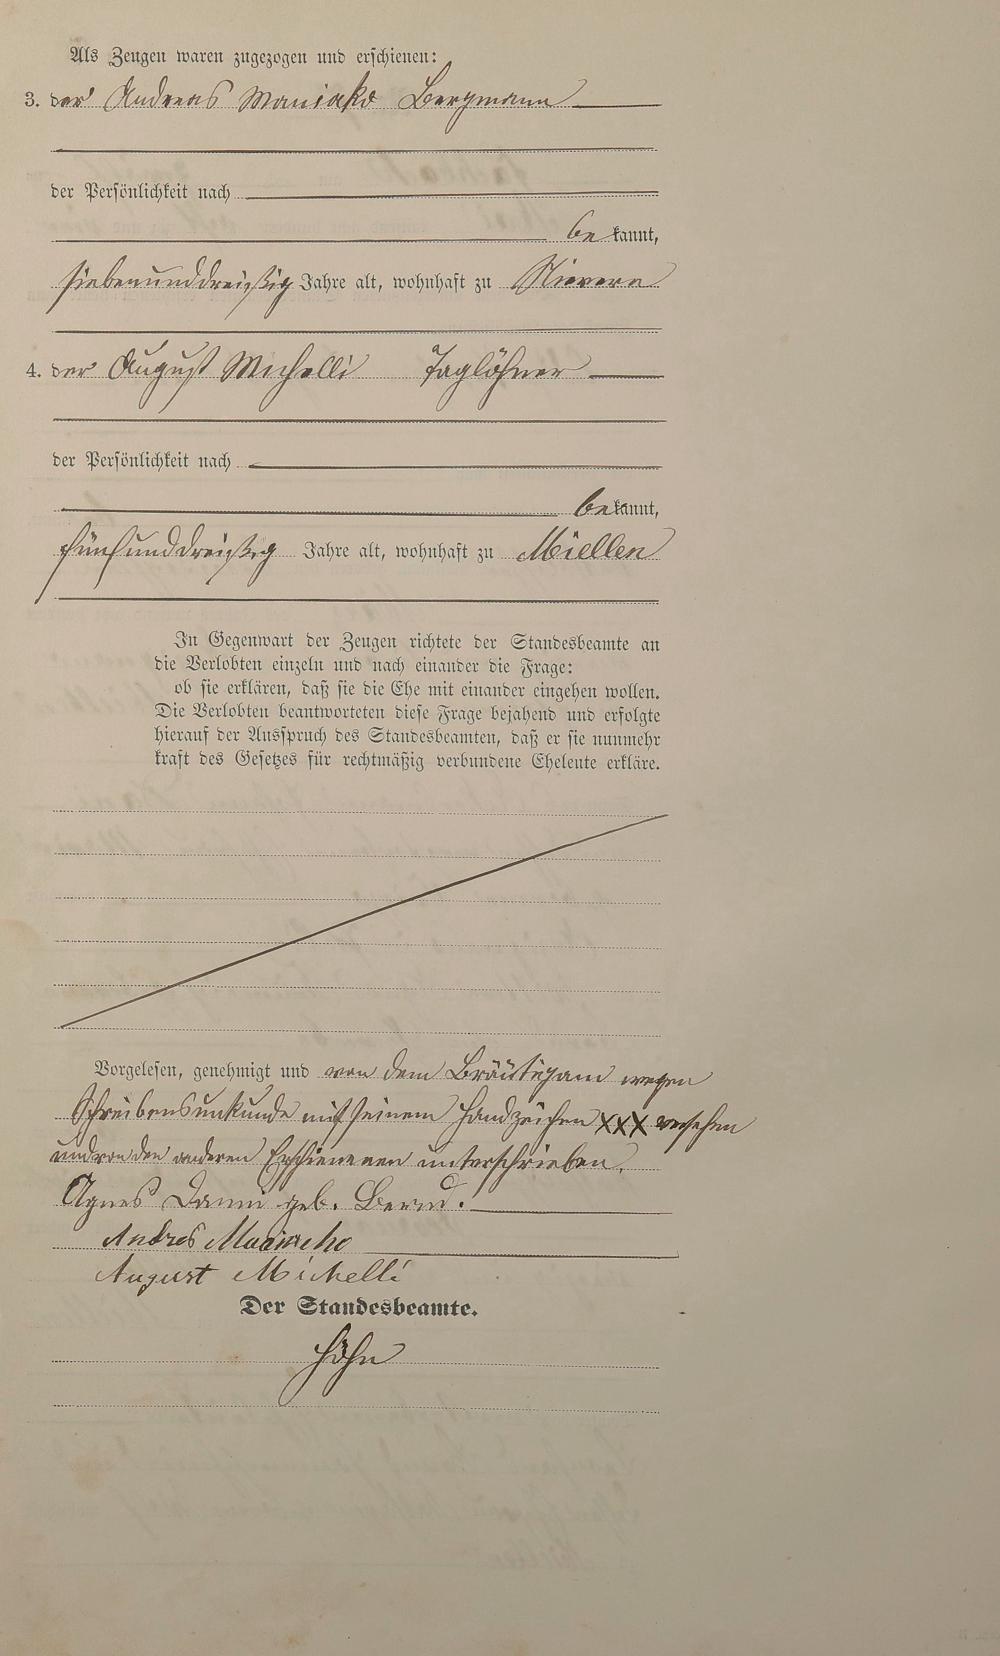 Als Zeugen waren zugezogen und erschienen:
3. der Andreas Maniako Bergmann
der Persönlichkeit nach
bekannt,
siebenunddreißig Jahre alt, wohnhaft zu Nievern
4. der August Michelli Taglöhner
der Persönlichkeit nach
bekannt,
fünfunddreißig Jahre alt, wohnhaft zu Miellen
In Gegenwart der Zeugen richtete der Standesbeamte an
die Verlobten einzeln und nach einander die Frage:
ob sie erklären, daß sie die Ehe mit einander eingehen wollen.
Die Verlobten beantworteten diese Frage bejahend und erfolgte
hierauf der Ausspruch des Standesbeamten, daß er sie nunmehr
kraft des Gesetzes für rechtmäßig verbundene Eheleute erkläre.
Vorgelesen, genehmigt und von dem Bräutigam wegen
Schreibensunkunde mit seinem Handzeichen XXX versehen
und von den anderen Erschienenen unterschrieben.
Agnes Danni geb. Bernd.
Andres
August Michelli
Der Standesbeamte.
Höhn